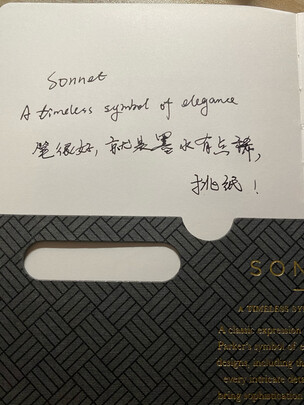 Sonnet
A timeless symbol of elegance
笔很好，就是墨水有点稀，
挑纸！
SON
A TIMELESS SY
A classic expression
Parker's symbol of e
designs, including th
every intricate det
bring sophistication